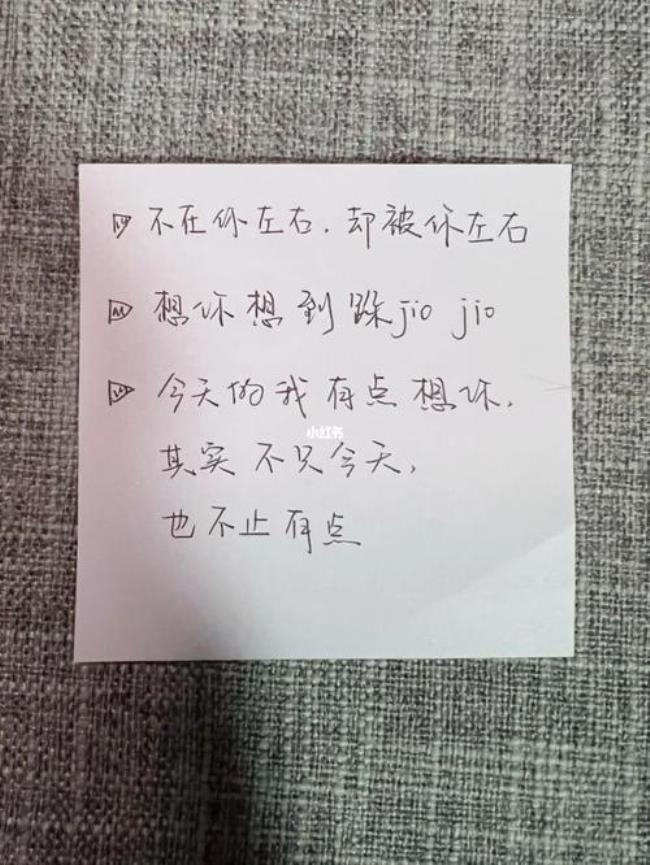 不在你左右，却被你左右
想你想到跺jio jio
今天的我有点想你，
小红书
其实不只今天，
也不止有点